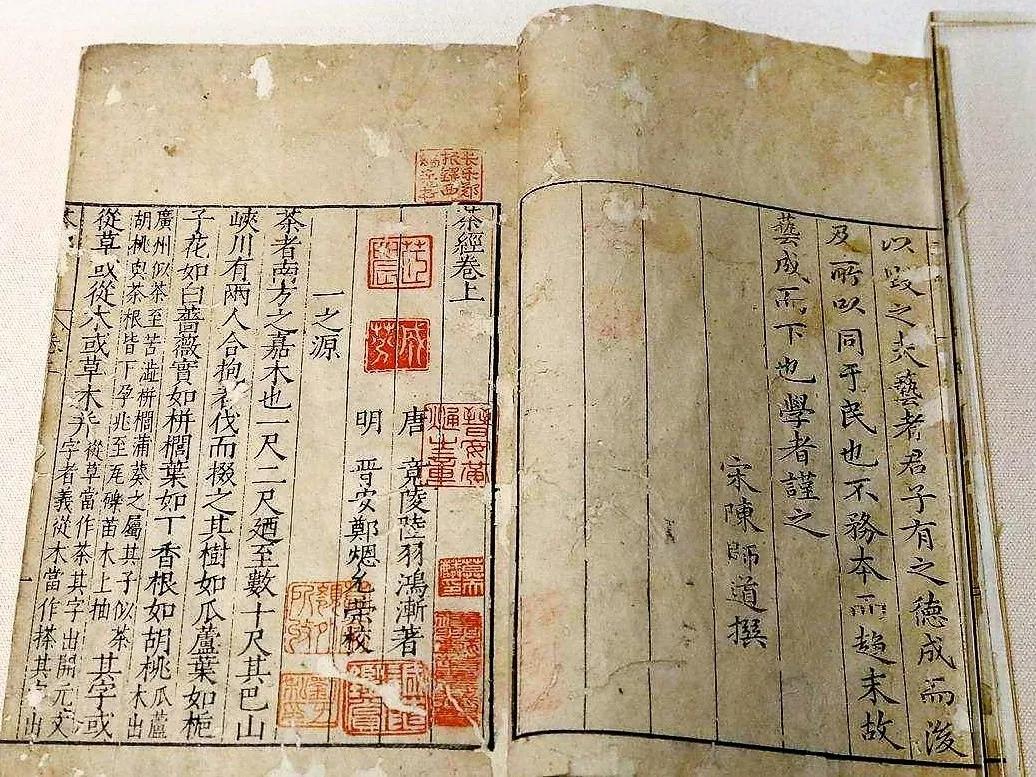 以政之夫藝者君子有之德成而後
及所以同于民也不務本而趨末故
藝成而下也學者謹之
宋陳師道撰
茶經卷上
唐 竟陵陸羽鴻漸著
明 晉安鄭熜允榮校
一之源
茶者南方之嘉木也一尺二尺廼至數十尺其巴山
峽川有兩人合抱者伐而掇之其樹如瓜蘆葉如梔
子花如白薔薇實如栟櫚葉如丁香根如胡桃瓜蘆
木出
廣州似茶至苦澁栟櫚蒲葵之屬其子似茶
胡桃與茶根皆下孕兆至瓦礫苗木上抽
其字或
從草或從木或草木并
從草當作茶其字出開元文
字者義從木當作搽其字出